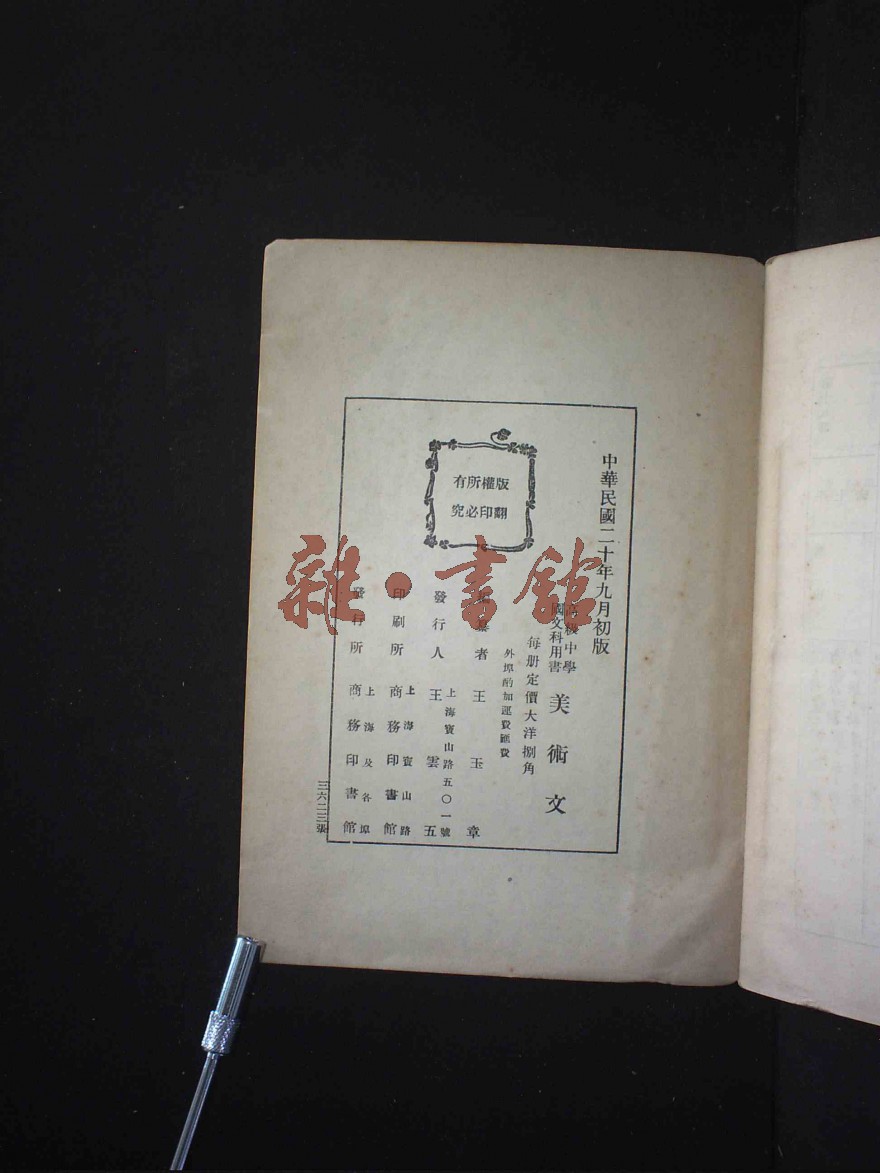 中華民國二十年九月初版
高級中學
國文科用書
美術文
每册定價大洋捌角
外埠酌加運費匯費
版權所有
翻印必究
編纂者 王玉章
發行人 王雲五
上海寶山路五〇一號
印刷所 商務印書館
上海寶山路
發行所 商務印書館
上海及各埠
三六二三張
雜·書館